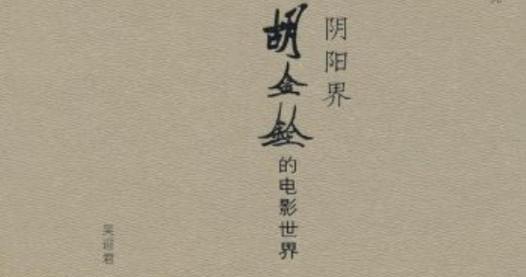 阴阳界
胡金铨的电影世界
吴迎君